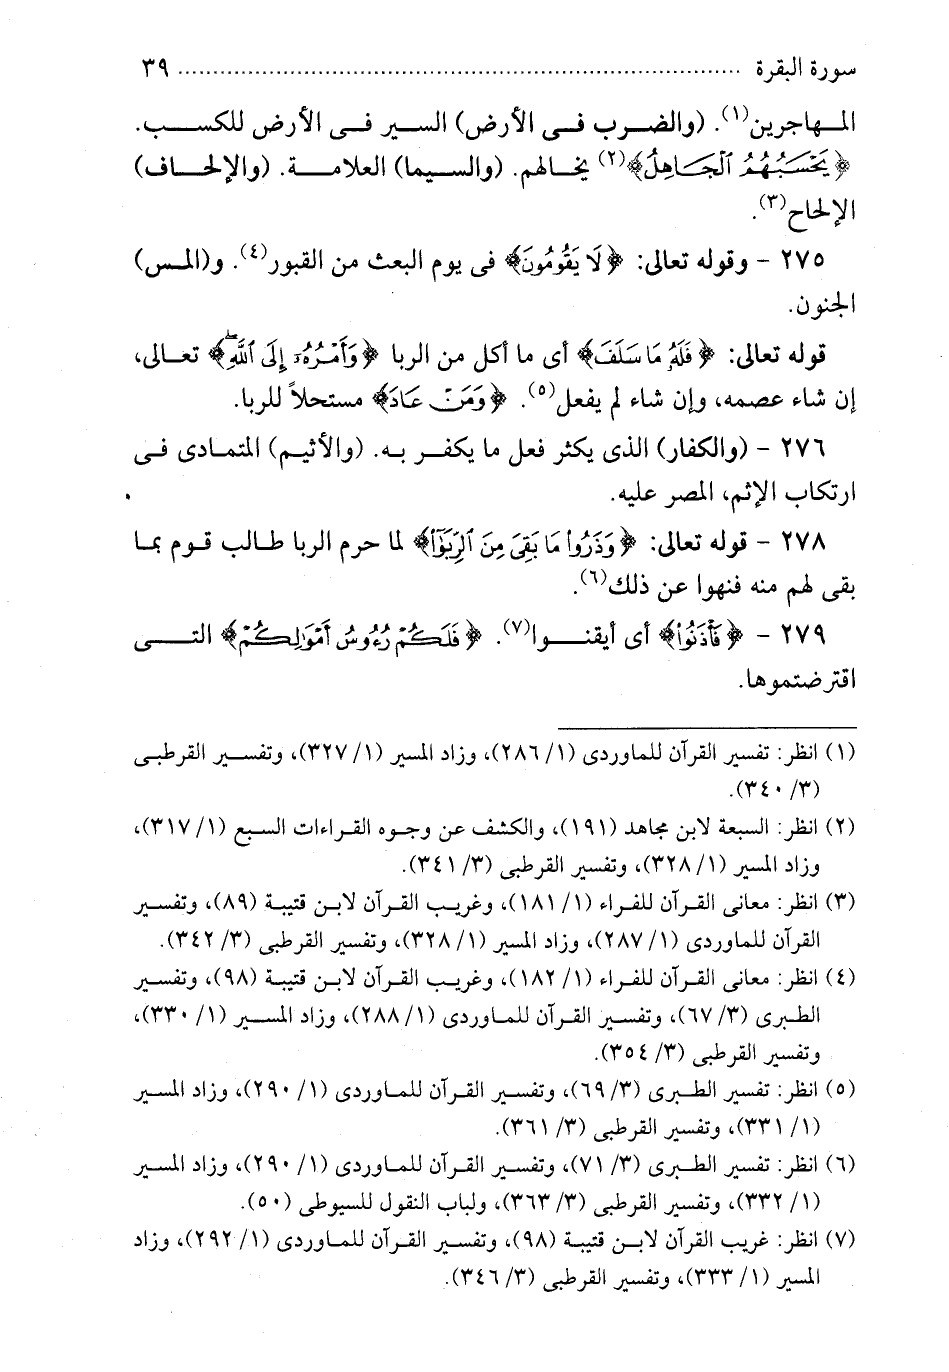 سورة البقرة ........................................ ٣٩
المهاجرين(١). (والضرب فى الأرض) السير فى الأرض للكسب.
﴿يَحْسَبُهُمُ ٱلْجَاهِلُ﴾(٢) يخالهم. (والسيما) العلامة. (والإلحاف)
الإلحاح(٣).
٢٧٥ - وقوله تعالى: ﴿لَا يَقُومُونَ﴾ فى يوم البعث من القبور(٤). و(المس)
الجنون.
قوله تعالى: ﴿فَلَهُۥ مَا سَلَفَ﴾ أى ما أكل من الربا ﴿وَأَمْرُهُۥٓ إِلَى ٱللَّهِۖ﴾ تعالى،
إن شاء عصمه، وإن شاء لم يفعل(٥). ﴿وَمَنْ عَادَ﴾ مستحلاً للربا.
٢٧٦ - (والكفار) الذى يكثر فعل ما يكفر به. (والأثيم) المتمادى فى
ارتكاب الإثم، المصر عليه.
٢٧٨ - قوله تعالى: ﴿وَذَرُوا۟ مَا بَقِىَ مِنَ ٱلرِّبَوٰٓا۟﴾ لما حرم الربا طالب قوم بما
بقى لهم منه فنهوا عن ذلك(٦).
٢٧٩ - ﴿فَأْذَنُوا۟﴾ أى أيقنوا(٧). ﴿فَلَكُمْ رُءُوسُ أَمْوَٰلِكُمْ﴾ التى
اقترضتموها.
(١) انظر: تفسير القرآن للماوردى (١/ ٢٨٦)، وزاد المسير (١/ ٣٢٧)، وتفسير القرطبى
(٣/ ٣٤٠).
(٢) انظر: السبعة لابن مجاهد (١٩١)، والكشف عن وجوه القراءات السبع (١/ ٣١٧)،
وزاد المسير (١/ ٣٢٨)، وتفسير القرطبى (٣/ ٣٤١).
(٣) انظر: معانى القرآن للفراء (١/ ١٨١)، وغريب القرآن لابن قتيبة (٨٩)، وتفسير
القرآن للماوردى (١/ ٢٨٧)، وزاد المسير (١/ ٣٢٨)، وتفسير القرطبى (٣/ ٣٤٢).
(٤) انظر: معانى القرآن للفراء (١/ ١٨٢)، وغريب القرآن لابن قتيبة (٩٨)، وتفسير
الطبرى (٣/ ٦٧)، وتفسير القرآن للماوردى (١/ ٢٨٨)، وزاد المسير (١/ ٣٣٠)،
وتفسير القرطبى (٣/ ٣٥٤).
(٥) انظر: تفسير الطبرى (٣/ ٦٩)، وتفسير القرآن للماوردى (١/ ٢٩٠)، وزاد المسير
(١/ ٣٣١)، وتفسير القرطبى (٣/ ٣٦١).
(٦) انظر: تفسير الطبرى (٣/ ٧١)، وتفسير القرآن للماوردى (١/ ٢٩٠)، وزاد المسير
(١/ ٣٣٢)، وتفسير القرطبى (٣/ ٣٦٣)، ولباب النقول للسيوطى (٥٠).
(٧) انظر: غريب القرآن لابن قتيبة (٩٨)، وتفسير القرآن للماوردى (١/ ٢٩٢)، وزاد
المسير (١/ ٣٣٣)، وتفسير القرطبى (٣/ ٣٤٦).